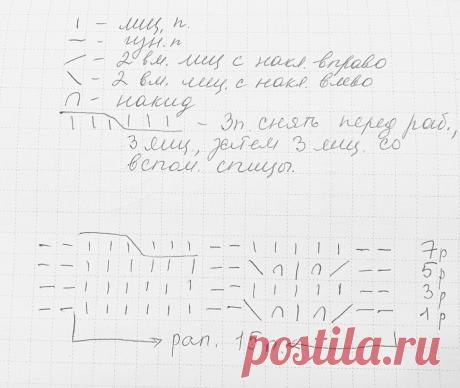 | – лиц, п.
— – изн. п
/ – 2 вм. лиц с накл. вправо
\ – 2 вм. лиц. с накл. влево
∩ – накид
| | | | | | – 3п. снять перед раб.,
3 лиц., затем 3 лиц. со
вспом. спицы.
— — | | | | | | — — | | | | | — — 7р
— — | | | | | | — — \ ∩ | ∩ / — — 5р
— — | | | | | | — — | | | | | — — 3р
— — | | | | | | — — \ ∩ | ∩ / — — 1р
рап. 15п
postila.ru